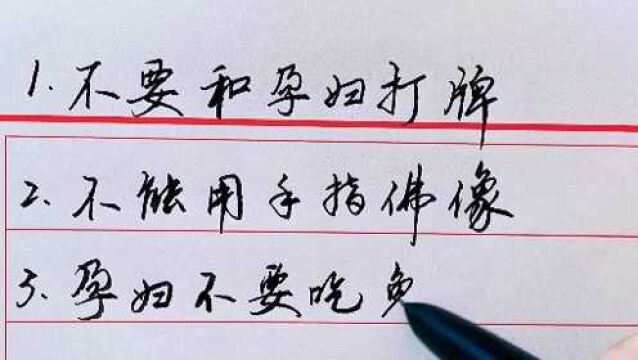 1. 不要和孕妇打牌
2. 不能用手指佛像
3. 孕妇不要吃